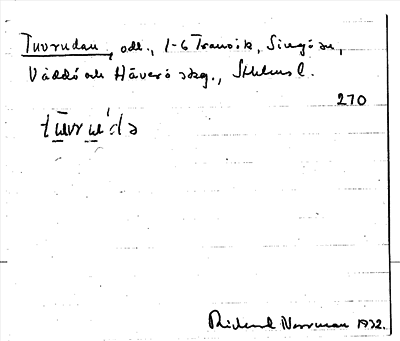 Tuvrudan, odl., 1-6 Tranvik, Singö sn,
Väddö och Häverö skg., Sthlms l.
270
tuvruda
Rickard Norrman 1932.